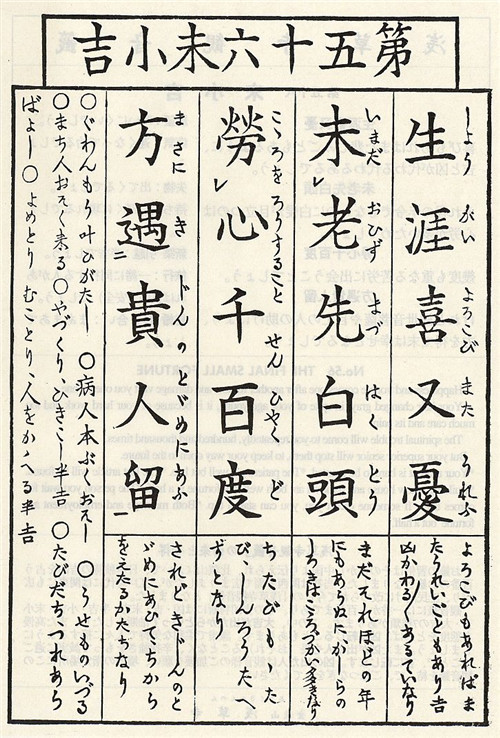 第五十六末小吉
生涯喜又憂
しやうがい よろこび また うれふ
よろこびもあればま
たうれいこともあり吉
凶かわる/\あるていなり
未老先白頭
いまだ おひず まづ はくとう
まだこれほどの年
にもあらぬにかしらの
しろきはこゝろづかい多きなり
勞レ心千百度
こゝろをろうすること せんひやくど
ちたびもも
たびしんろうたへ
ずとなり
方遇二貴人留一
まさに きじんのとゞめにあふ
されどきじんのとゞ
めにあひてちから
をえたるかたちなり
○ぐわんもう叶ひがたし ○病人本ぶくおそし ○うせものいづる
○まち人おそく来る ○やづくりひきこし半吉 ○たびだちつれあら
ばよし ○よめとりむことり人をかゝへる半吉